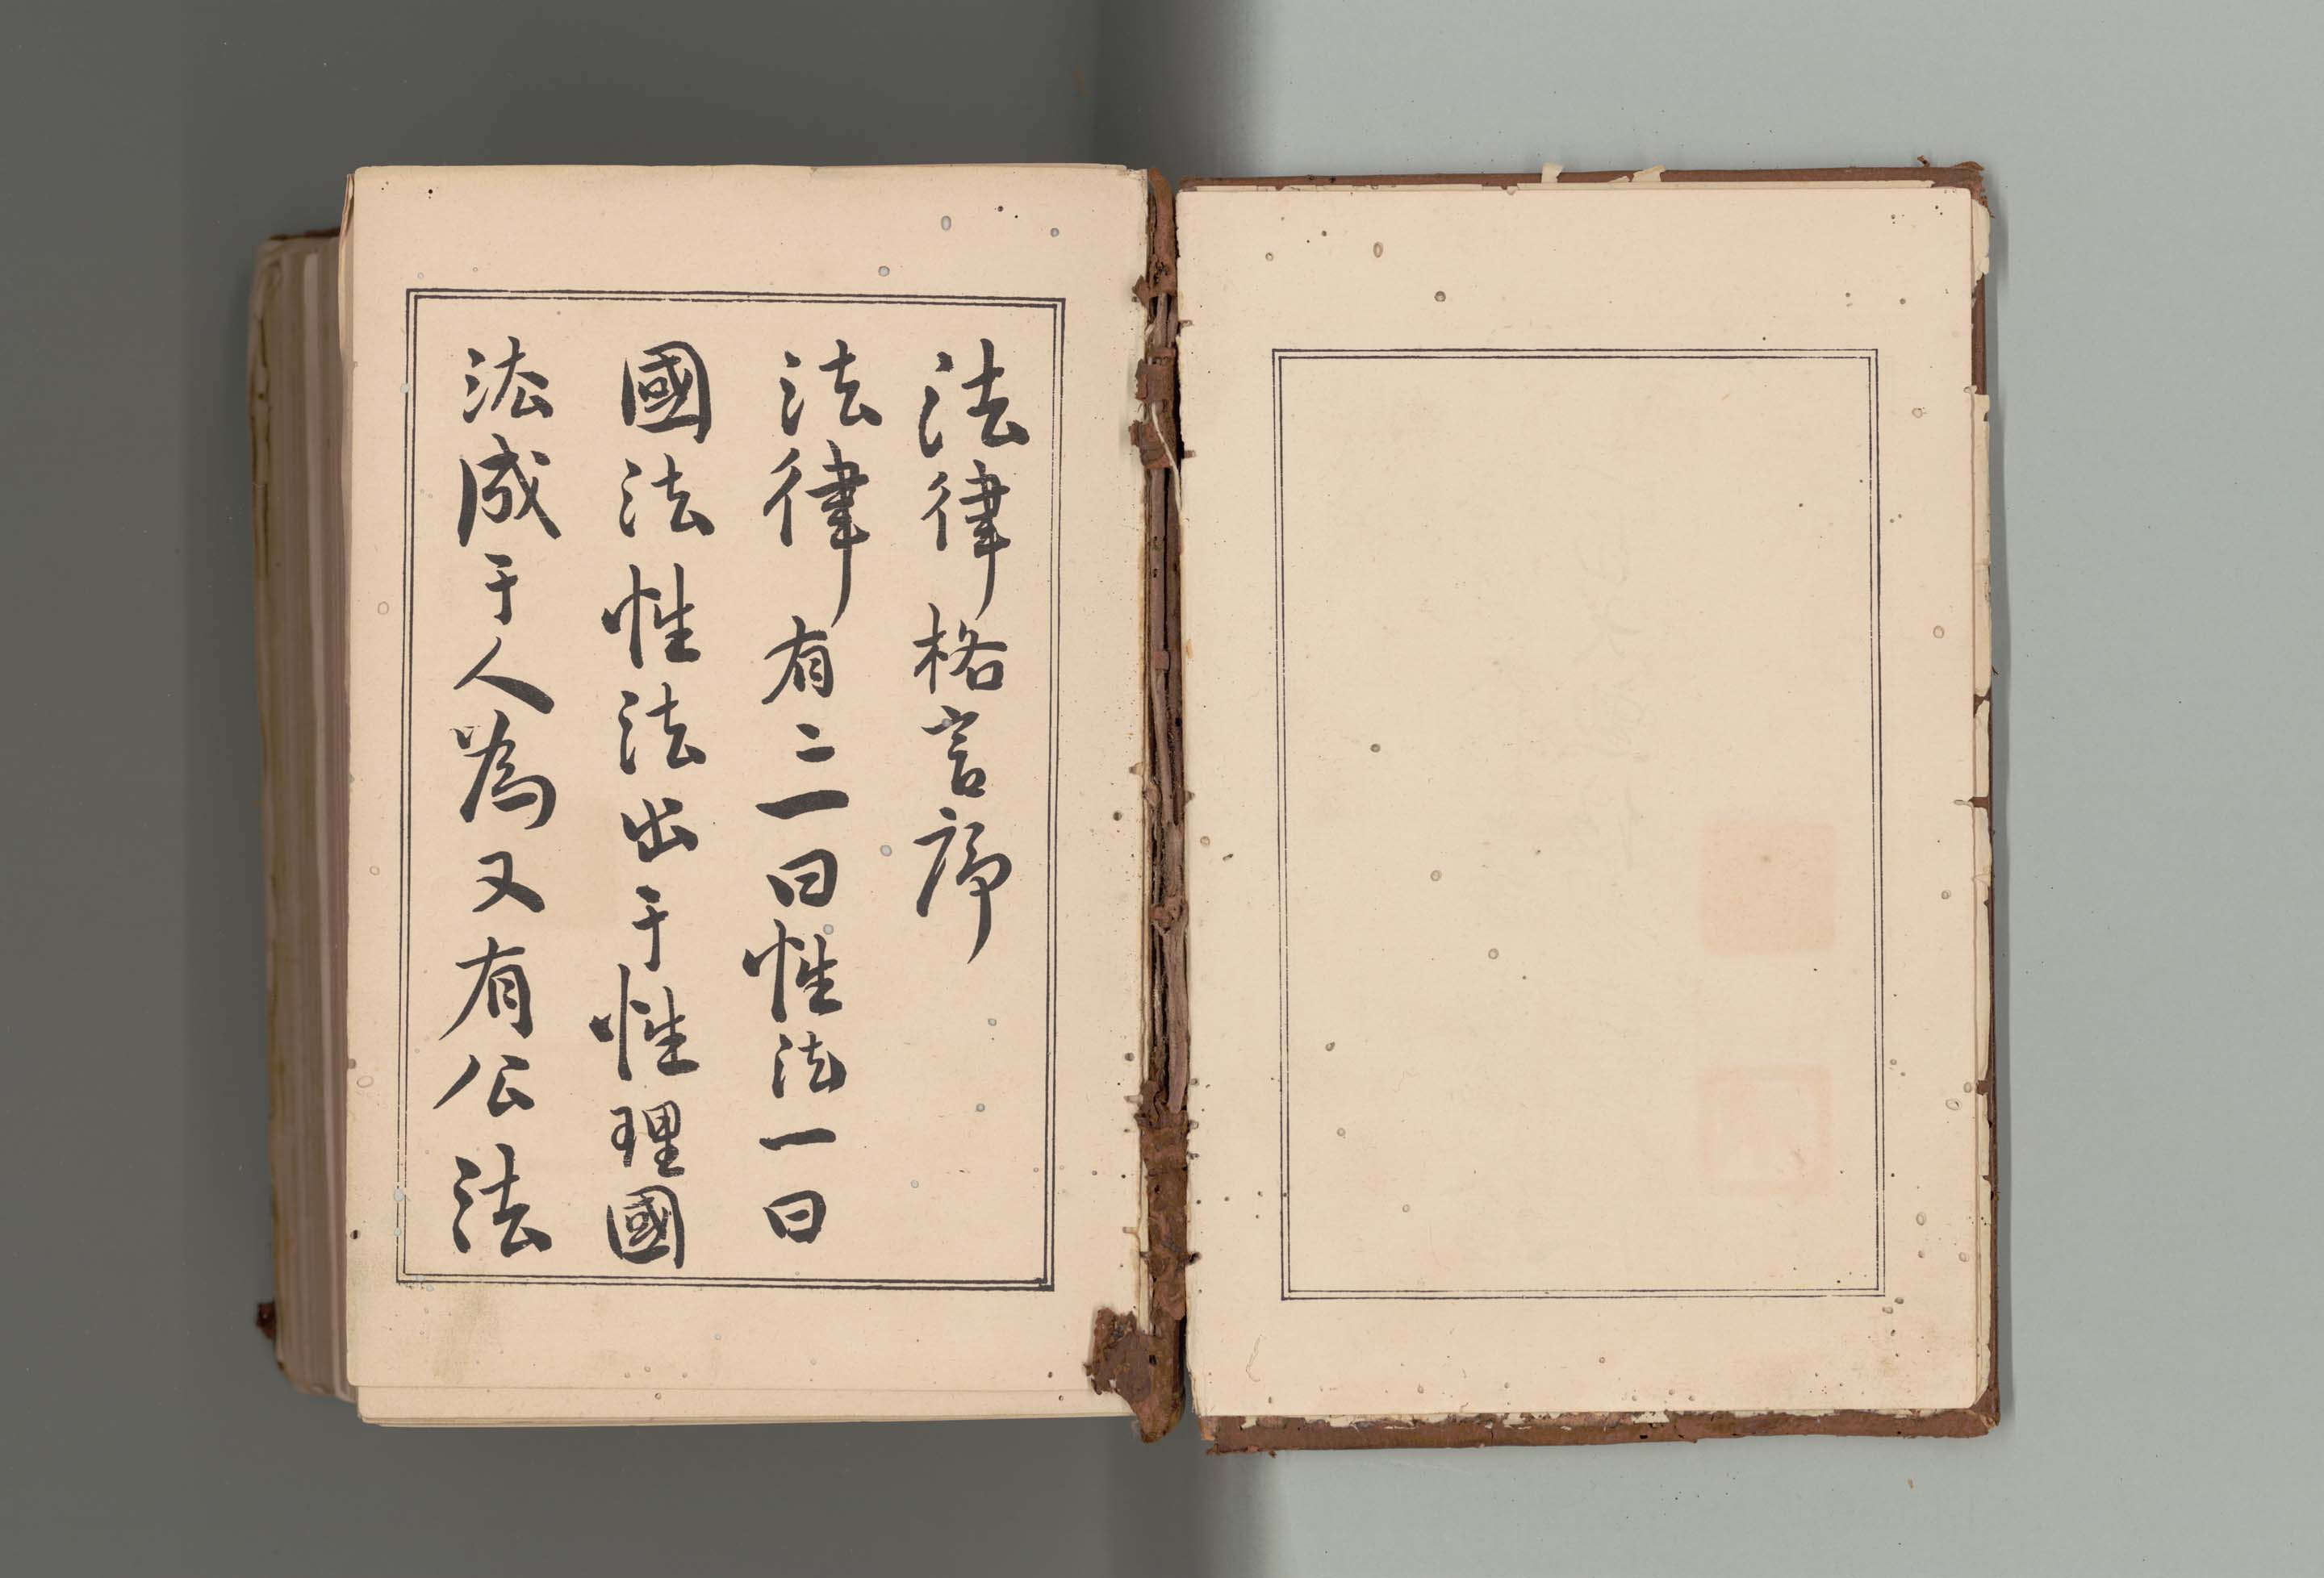 法律格言序
法律有二一曰性法一曰
國法性法出于性理國
法成于人為又有公法